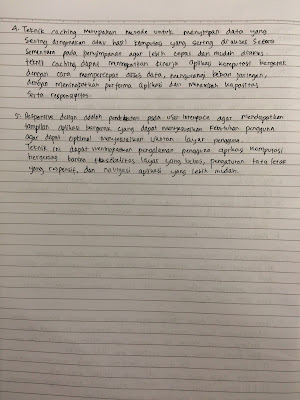 4. Teknik caching merupakan metode untuk menyimpan data yang
sering digunakan atau hasil komputasi yang sering diakses secara
sementara pada penyimpanan agar lebih cepat dan mudah diakses
teknik caching dapat meningkatkan kinerja aplikasi komputasi bergerak
dengan cara mempercepat akses data, mengurangi beban jaringan,
dengan meningkatkan performa aplikasi dan menambah kapasitas
serta responsifitas.
5. Responsive design adalah pendekatan pada user interface agar mendapatkan
tampilan aplikasi bergerak yang dapat menyesuaikan kebutuhan pengguna
agar dapat optimal menyesuaikan ukuran layar pengguna.
Teknik ini dapat meningkatkan pengalaman pengguna aplikasi komputasi
bergerak karena fleksibilitas layar yang bebas, pengaturan tata letak
yang responsif, dan navigasi aplikasi yang lebih mudah.